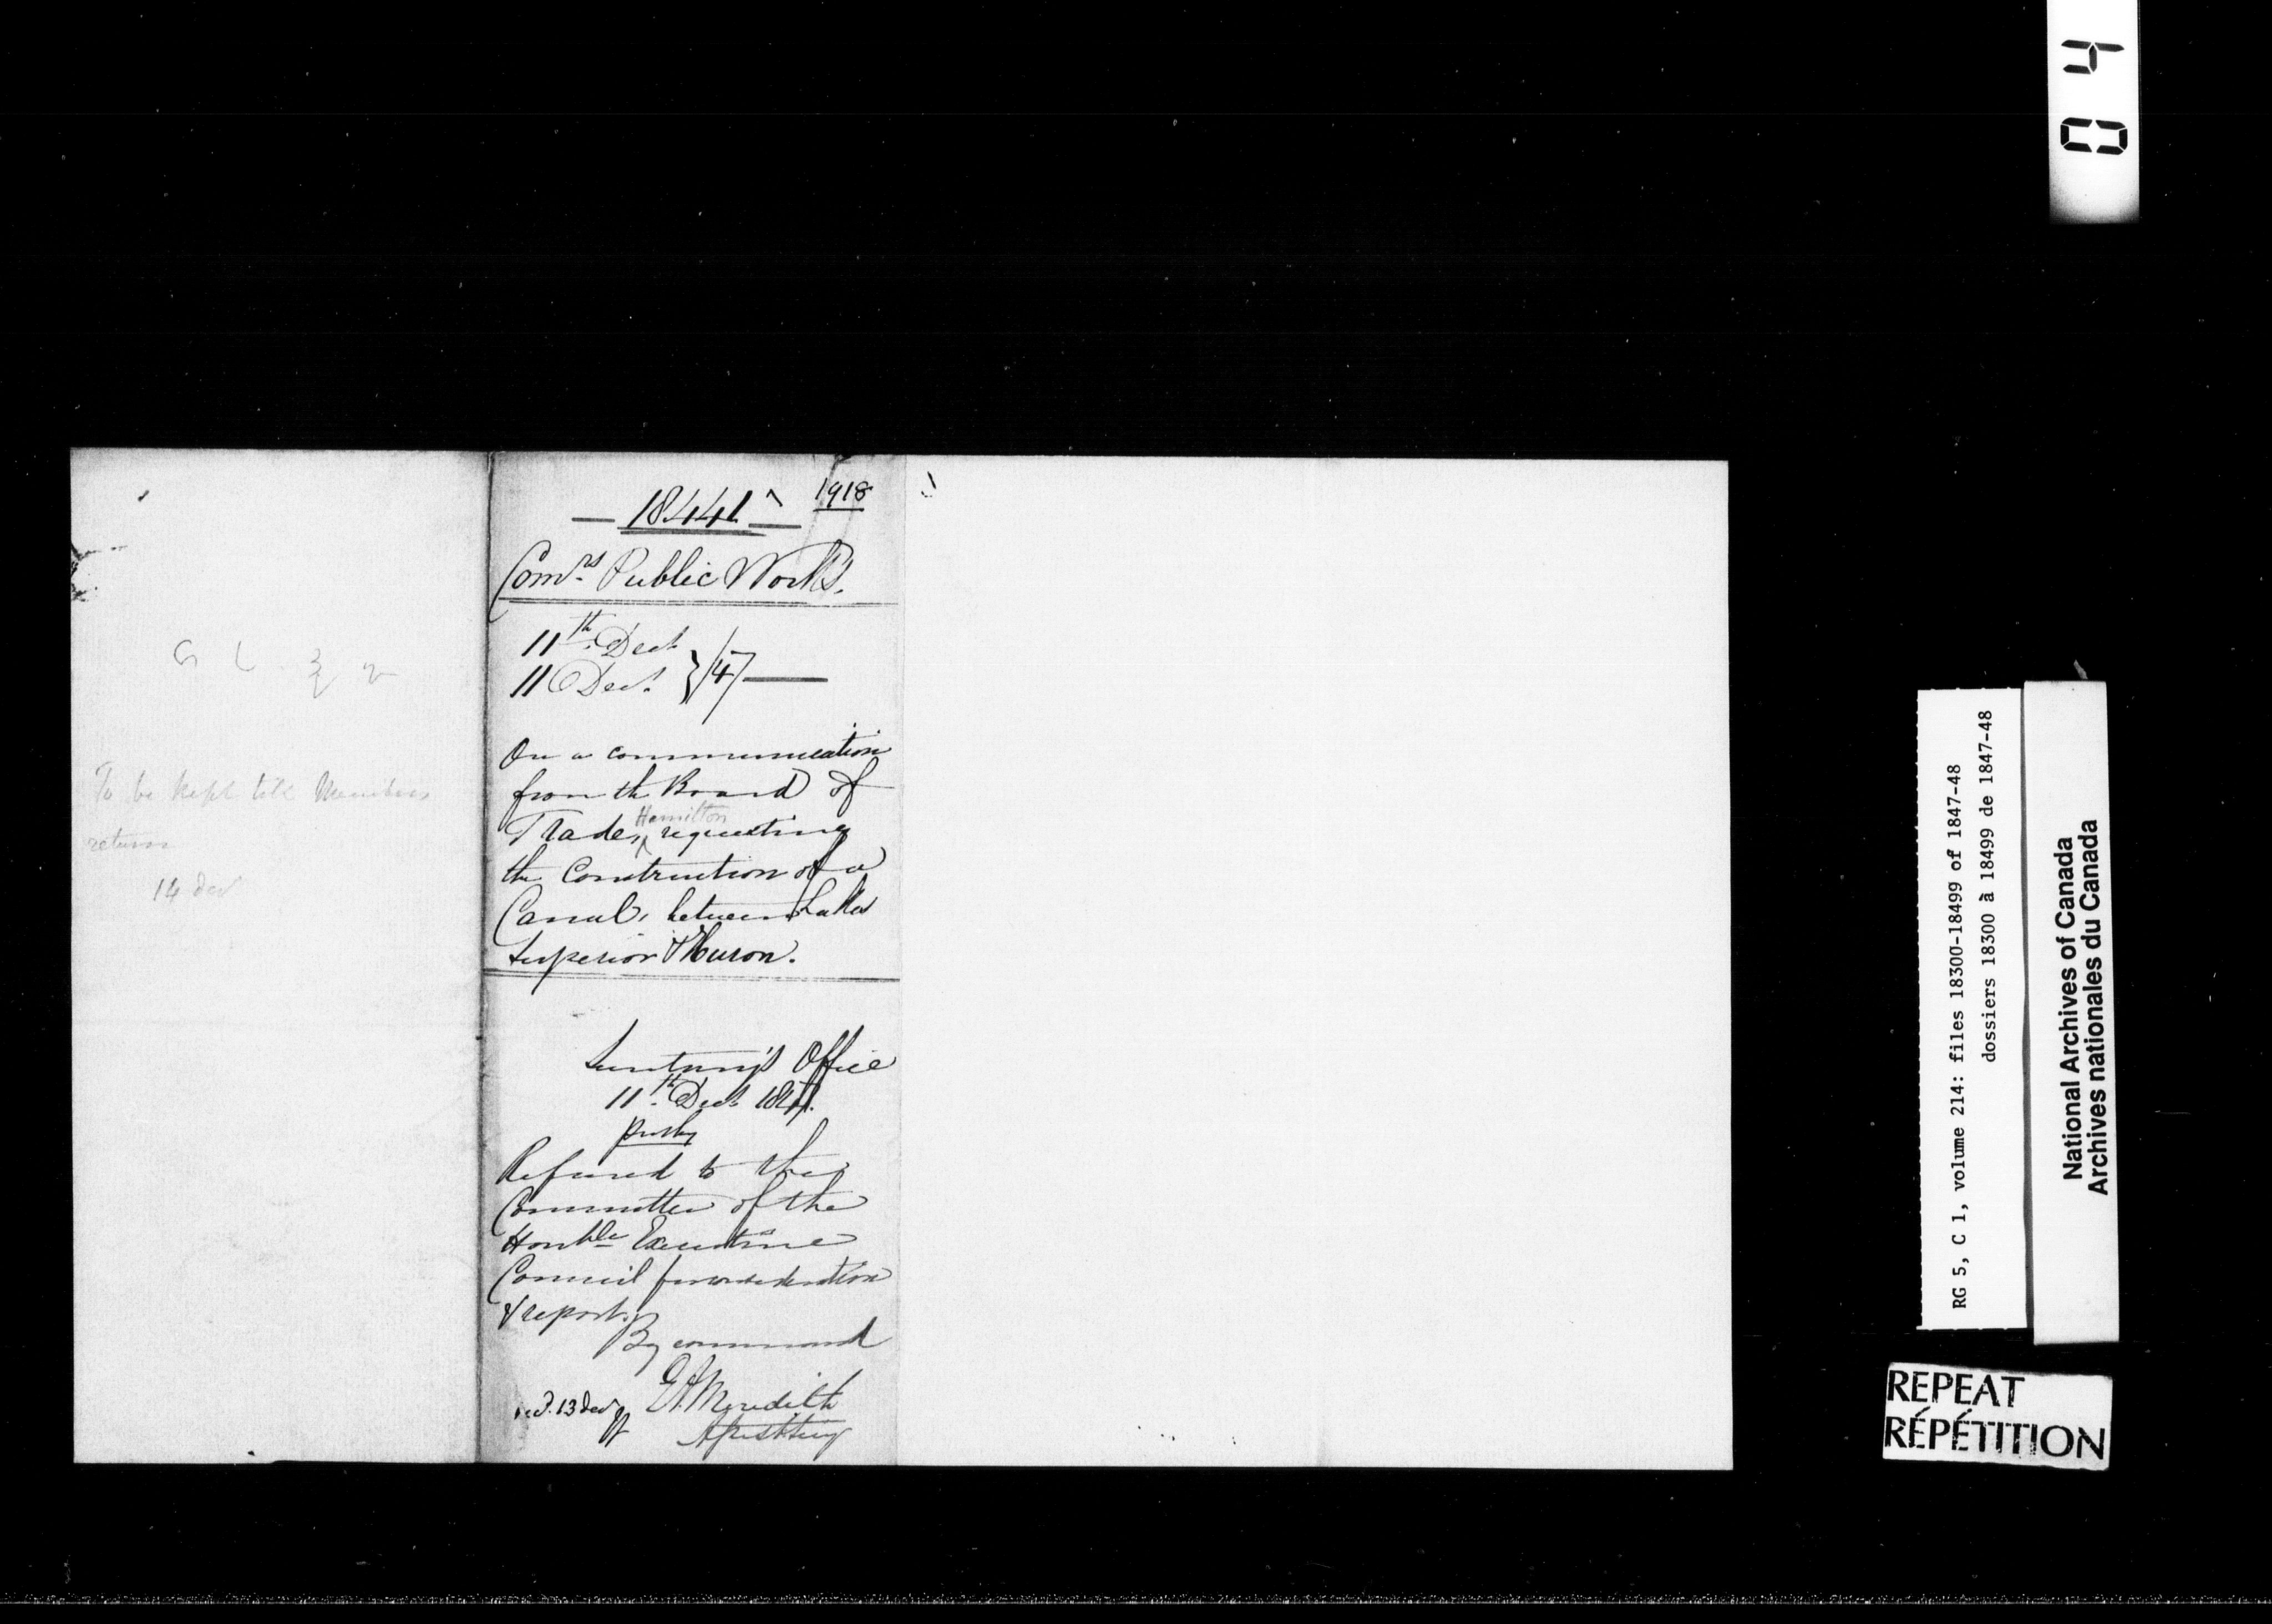 04
1918
18441
Comrs Public Works.
11th Decr
11 Decr } /47
On a communication
from the Board of
Hamilton
Trade, requesting
the Construction of a
Canal, between Lakes
Superior & Huron.
Secretary's Office
11th Decr 1847.
Referred to the
Committee of the
Honble Executive
Council for consideration
& report.
By command
E A Meredith
Asst Secy
recd. 13 Decr
To be kept till Members
return
14 Decr
RG 5, C 1, volume 214: files 18300-18499 of 1847-48
dossiers 18300 à 18499 de 1847-48
National Archives of Canada
Archives nationales du Canada
REPEAT
RÉPÉTITION